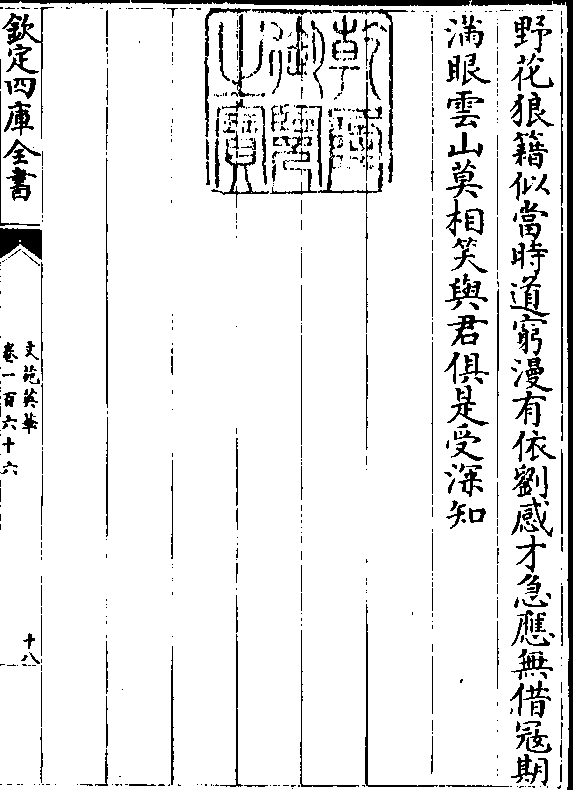 野花狼籍似當時道窮漫有依劉感才急應無借冦期
滿眼雲山莫相笑與君俱是受深知
乾隆御覽之寶
欽定四庫全書
文苑英華
卷一百六十六
十八